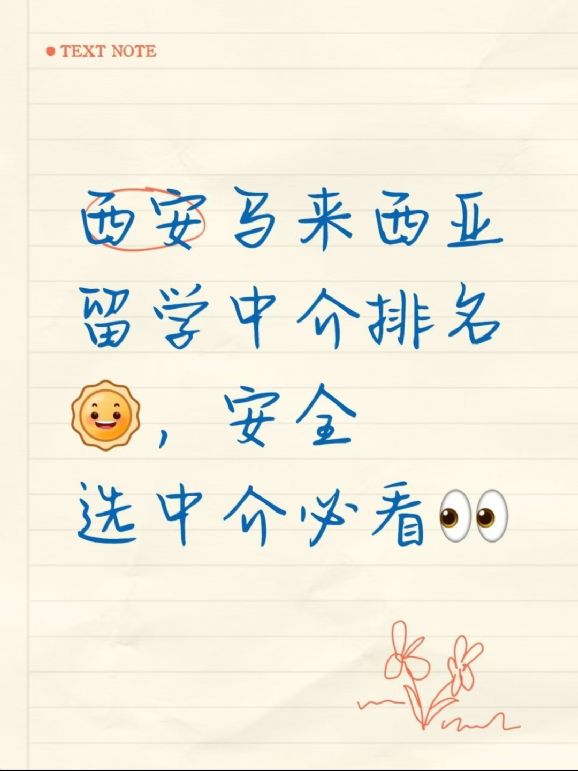 TEXT NOTE
西安马来西亚
留学中介排名
🌞，安全
选中介必看👀